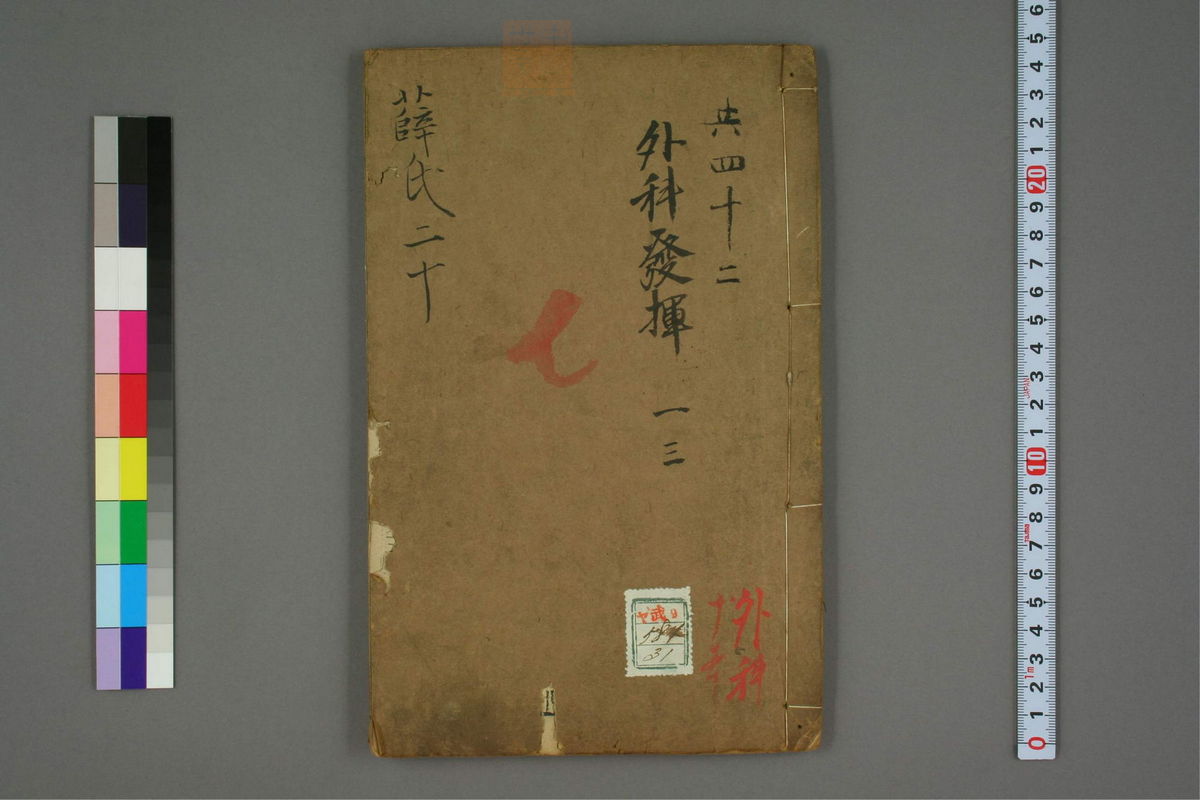 共四十二
外科發揮 一三
薛氏二十
七
外科
ヤ 9
31
6 5 4 3 2 1 20 9 8 7 6 5 4 3 2 1 10 9 8 7 6 5 4 3 2 1 0
JAPAN
1m